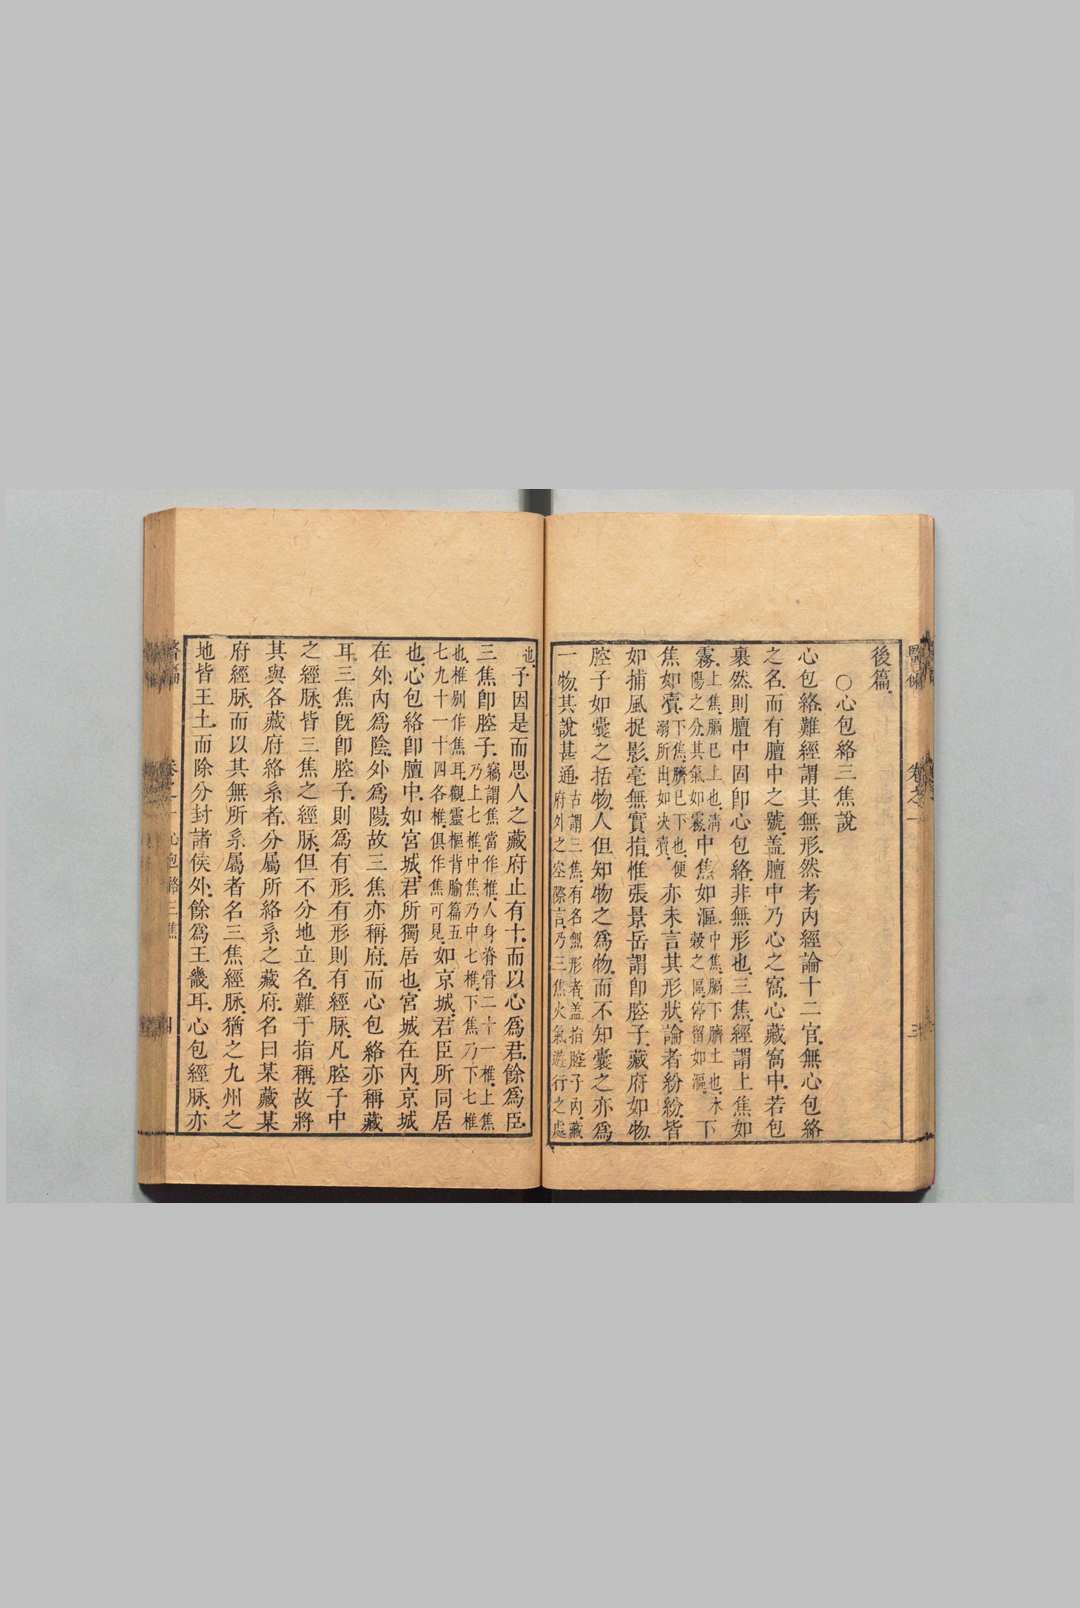 後篇
〇心包絡三焦說
心包絡難經謂其無形然考內經論十二官無心包絡
之名而有膻中之號蓋膻中乃心之窩心藏窩中若包
裹然則膻中固卽心包絡非無形也三焦經謂上焦如
霧上焦膈已上也淸陽之分其氣如霧中焦如漚中焦膈下臍上也水穀之區停留如漚下
焦如瀆下焦臍已下也便溺所出如决瀆亦未言其形狀論者紛紛皆
如捕風捉影毫無實指惟張景岳謂卽腔子藏府如物
腔子如囊之括物人但知物之爲物而不知囊之亦爲
一物其說甚通古謂三焦有名無形者蓋指腔子內藏府外之空際言乃三焦火氣遊行之處
也予因是而思人之藏府止有十而以心爲君餘爲臣
三焦卽腔子竊謂焦當作椎人身脊骨二十一椎上焦乃上七椎中焦乃中七椎下焦乃下七椎
也椎別作焦耳觀靈樞背腧篇五七九十一十四各椎俱作焦可見如京城君臣所同居
也心包絡卽膻中如宮城君所獨居也宮城在內京城
在外內爲陰外爲陽故三焦亦稱府而心包絡亦稱藏
耳三焦旣卽腔子則爲有形有形則有經脉凡腔子中
之經脉皆三焦之經脉但不分地立名難于指稱故將
其與各藏府絡系者分屬所絡系之藏府名曰某藏某
府經脉而以其無所系屬者名三焦經脉猶之九州之
地皆王土而除分封諸侯外餘爲王畿耳心包經脉亦
卷之一 心包絡三焦
四